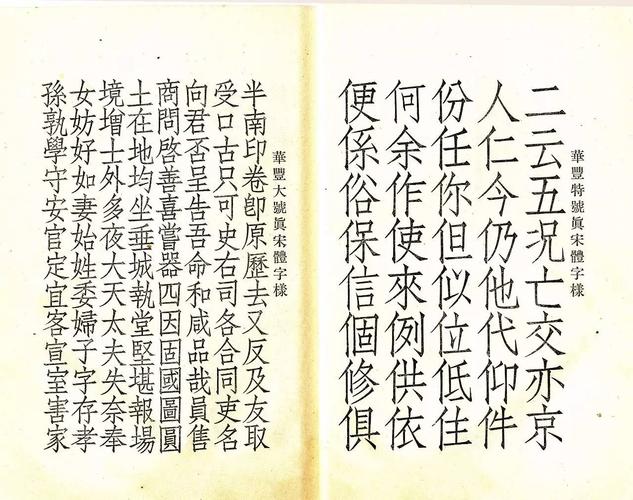 華豐特號眞宋體字樣
二云五況亡交亦京
人仁今仍他代仰件
份任你但似位低住
何余作使來例供依
便係俗保信個修俱
華豐大號眞宋體字樣
半南印卷卽原歷去又反及友取
受口古只可史右司各合同吏名
向君否呈告吾命和咸品哉員售
商問啓善喜嘗器四因固國圖圓
土在地均坐垂城執堂堅堪報場
境增士外多夜大天太夫失奈奉
女妨好如妻始姓委婦子字存孝
孫孰學守安官定宜客宣室害家